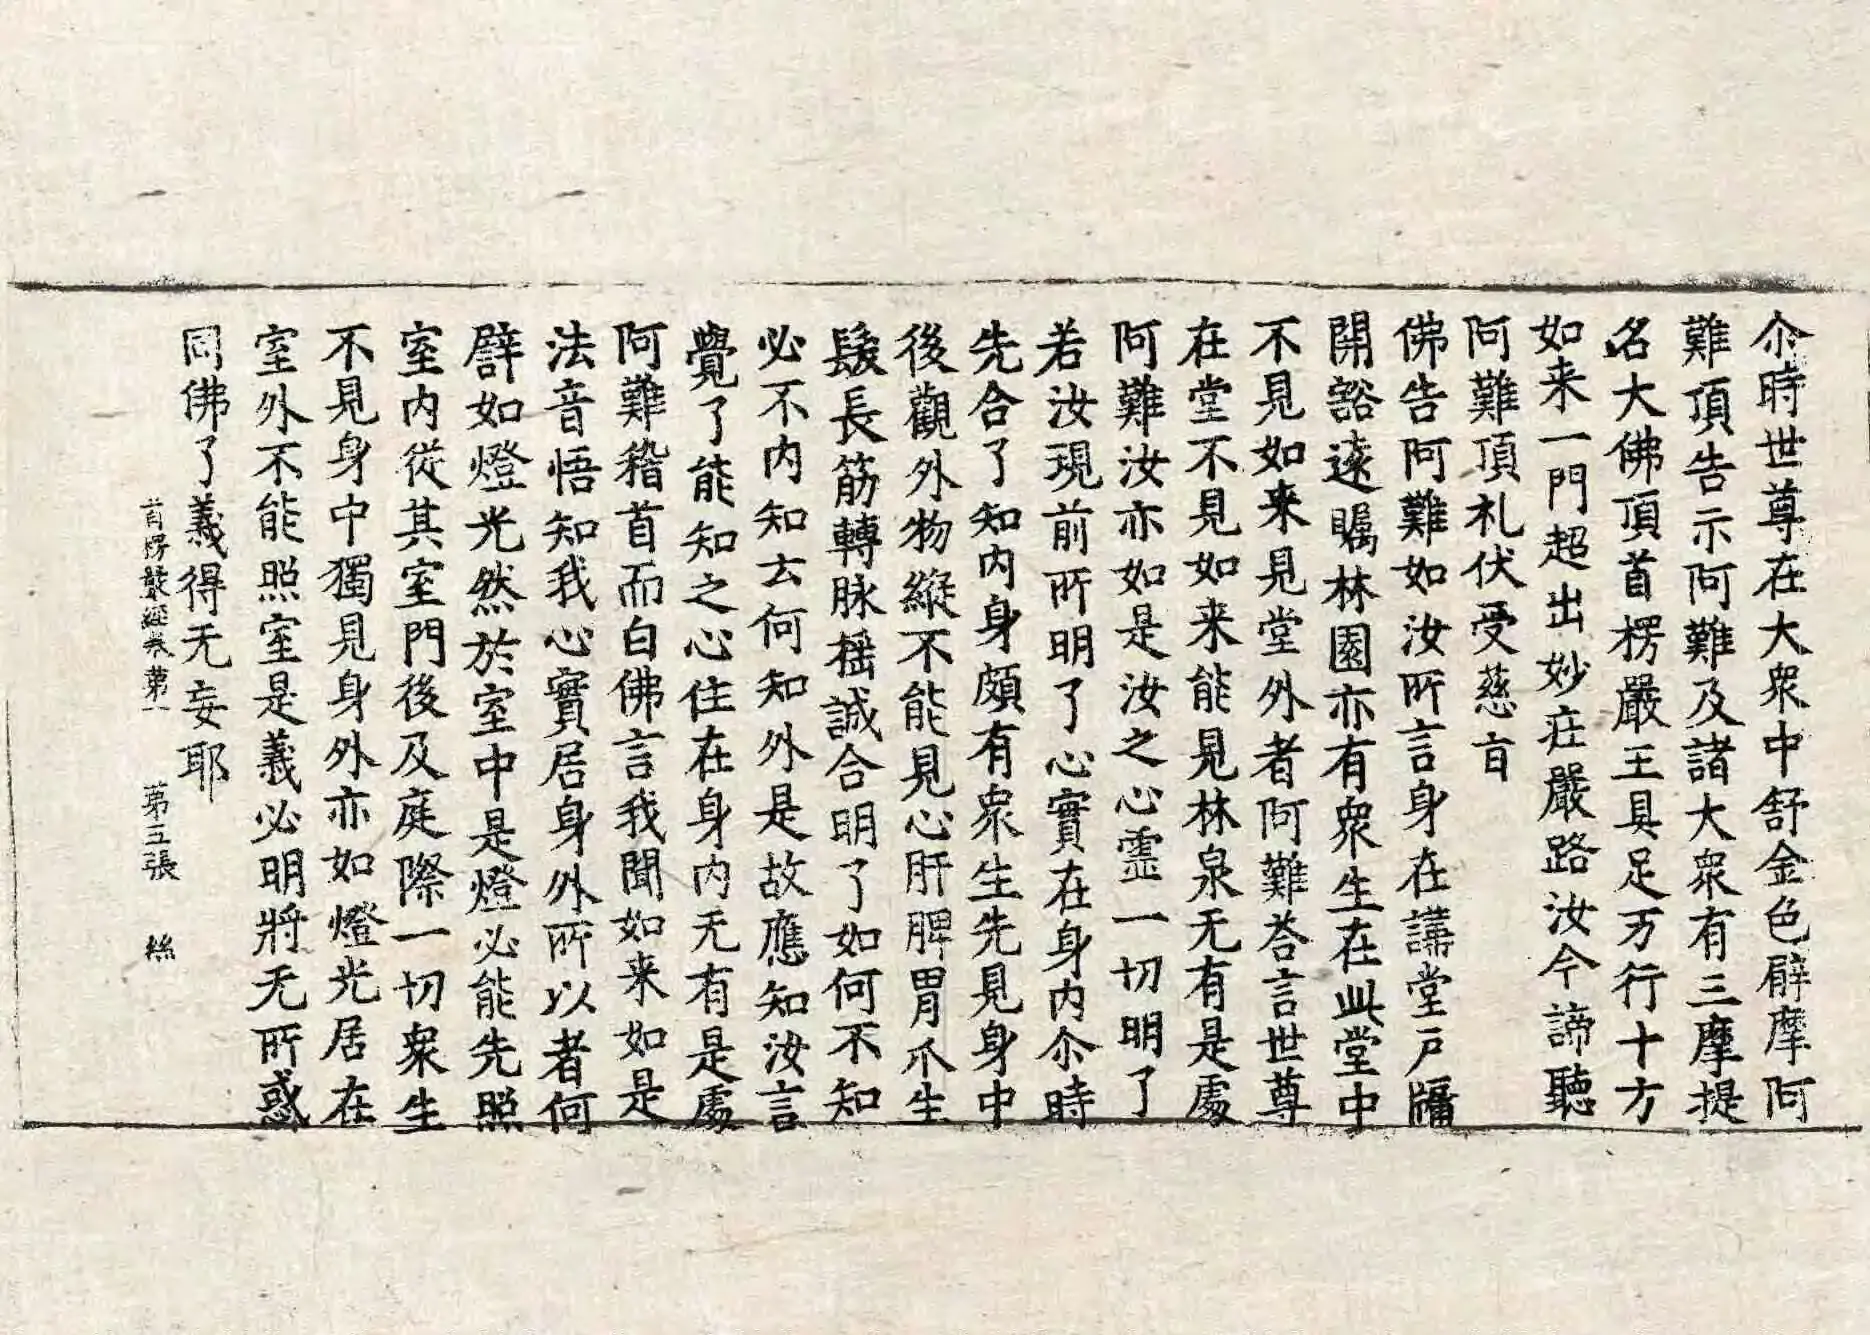 尒時世尊在大衆中舒金色臂摩阿
難頂告示阿難及諸大衆有三摩提
名大佛頂首楞嚴王具足万行十方
如来一門超出妙庄嚴路汝今諦聽
阿難頂礼伏受慈㫖
佛告阿難如汝所言身在講堂戶牖
開豁遠矚林園亦有衆生在此堂中
不見如来見堂外者阿難荅言世尊
在堂不見如来能見林泉无有是處
阿難汝亦如是汝之心霊一切明了
若汝現前所明了心實在身内尒時
先合了知内身頗有衆生先見身中
後觀外物縱不能見心肝脾胃爪生
髮長筋轉脉揺誠合明了如何不知
必不内知云何知外是故應知汝言
覺了能知之心住在身内无有是處
阿難稽首而白佛言我聞如来如是
法音悟知我心實居身外所以者何
譬如燈光然於室中是燈必能先照
室内從其室門後及庭際一切衆生
不見身中獨見身外亦如燈光居在
室外不能照室是義必明將无所惑
同佛了義得无妄耶
首楞嚴經卷第一 第五張 絲